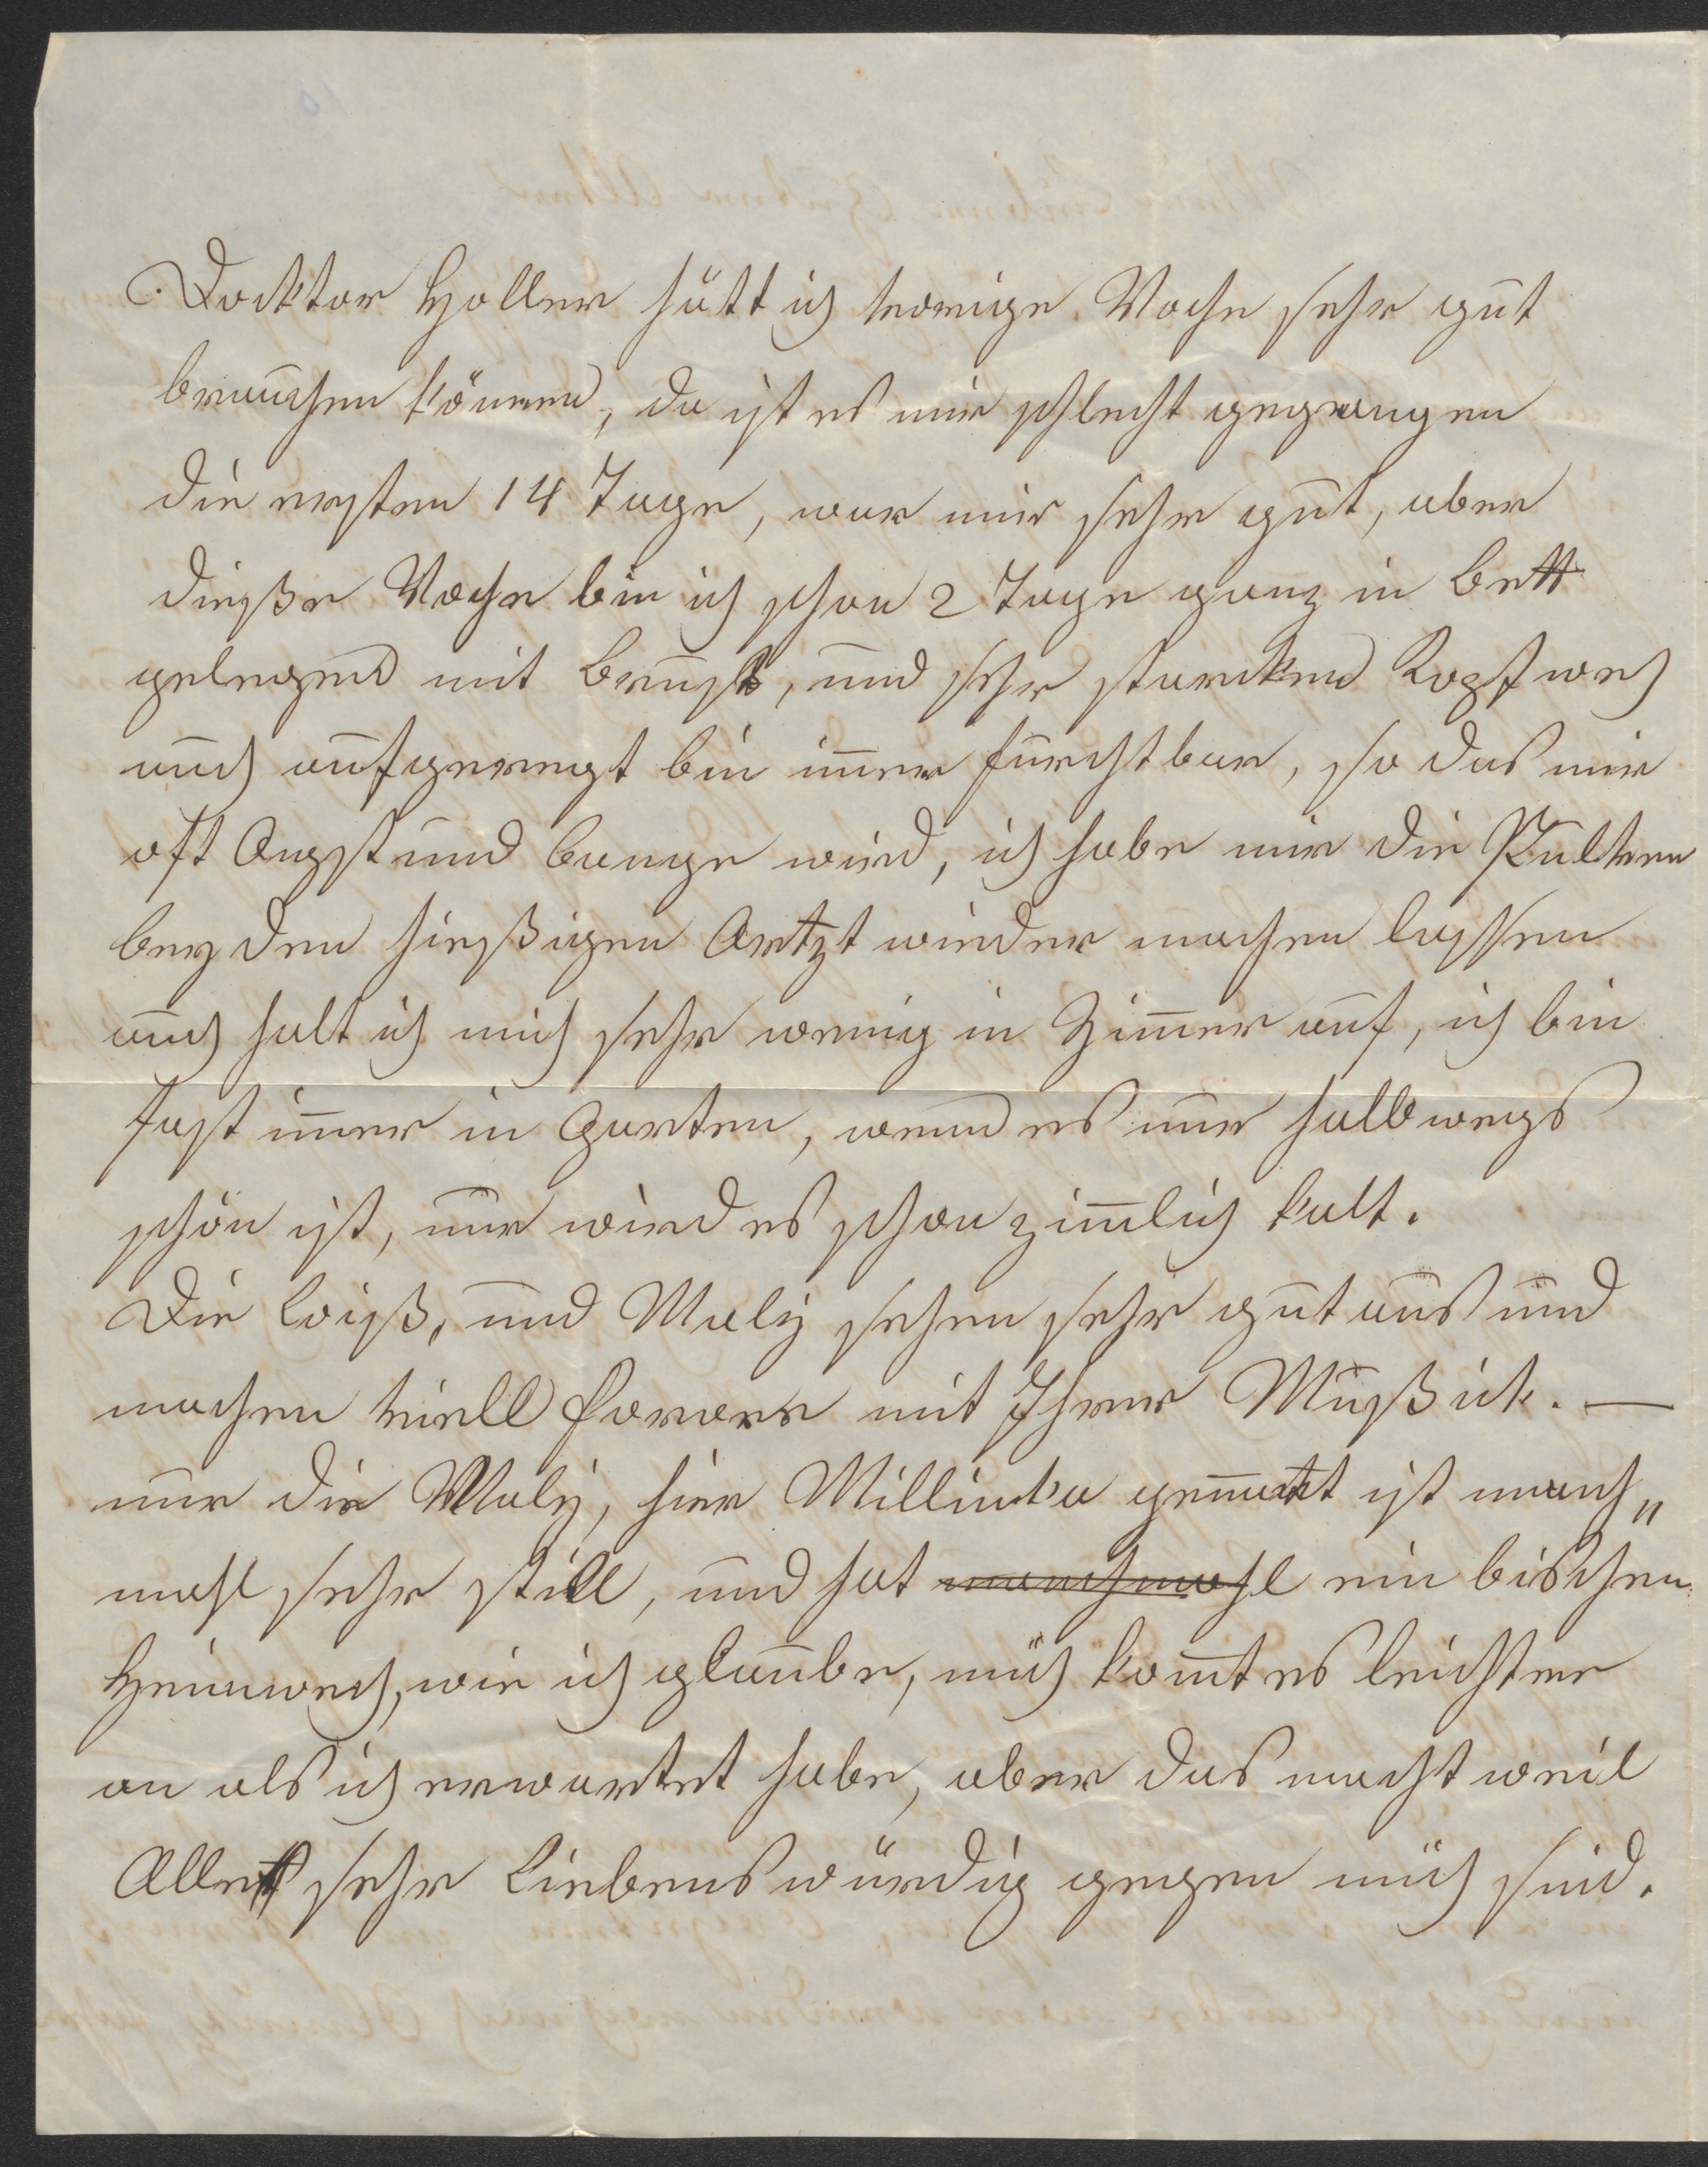 Docktor Holler hätt ich vorige Woche sehr gut
brauchen können, da ist es mir schlecht gegangen
die ersten 14 Tage, war mir sehr gut, aber
dießße Woche bin ich schon 2 Tage ganz in Bett
gelegen mit Brust, und sehr starcken Kopfweh
auch aufgeregt bin im̅er furchtbar, so das mir
oft Angst und bange wird, ich habe mir die Pulver
bey den hießigen Artzt wieder machen lassen
auch halt ich mich sehr wenig in Zim̅er auf, ich bin
fast im̅er in Garten, wenn es nur halbwegs
schön ist, nur wird es schon zim̅lich kalt.
Die Loiß, und Maly sehen sehr gut aus und
machen viell forore mit Ihrer Mußick. —
nur die Maly, hier Millinka genant ist manch„
mahl sehr still, und hat manchmahl ein bischen
Heimweh, wie ich glaube, mich kom̅t es leichter
an als ich erwartet habe, aber das macht weil
Alle sehr Liebenswürdig gegen mich sind.